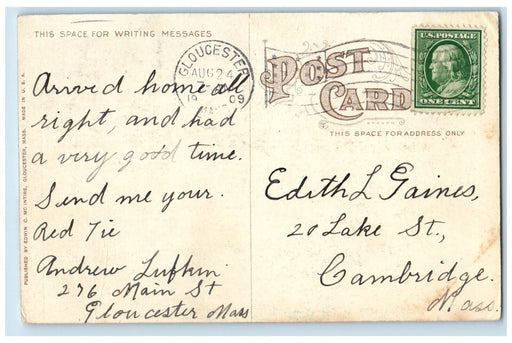 THIS SPACE FOR WRITING MESSAGES
GLOUCESTER
AUG 24
19 09
MASS.
POST
CARD
THIS SPACE FOR ADDRESS ONLY
U.S. POSTAGE
ONE CENT
PUBLISHED BY EDWIN C. MCINTIRE, GLOUCESTER, MASS. MADE IN U.S.A.
Arived home all
right, and had
a very good time.
Send me your.
Red Tie
Andrew Lufkin
276 Main St
Gloucester Mass
Edith L Gaines,
20 Lake St.,
Cambridge.
Mass.